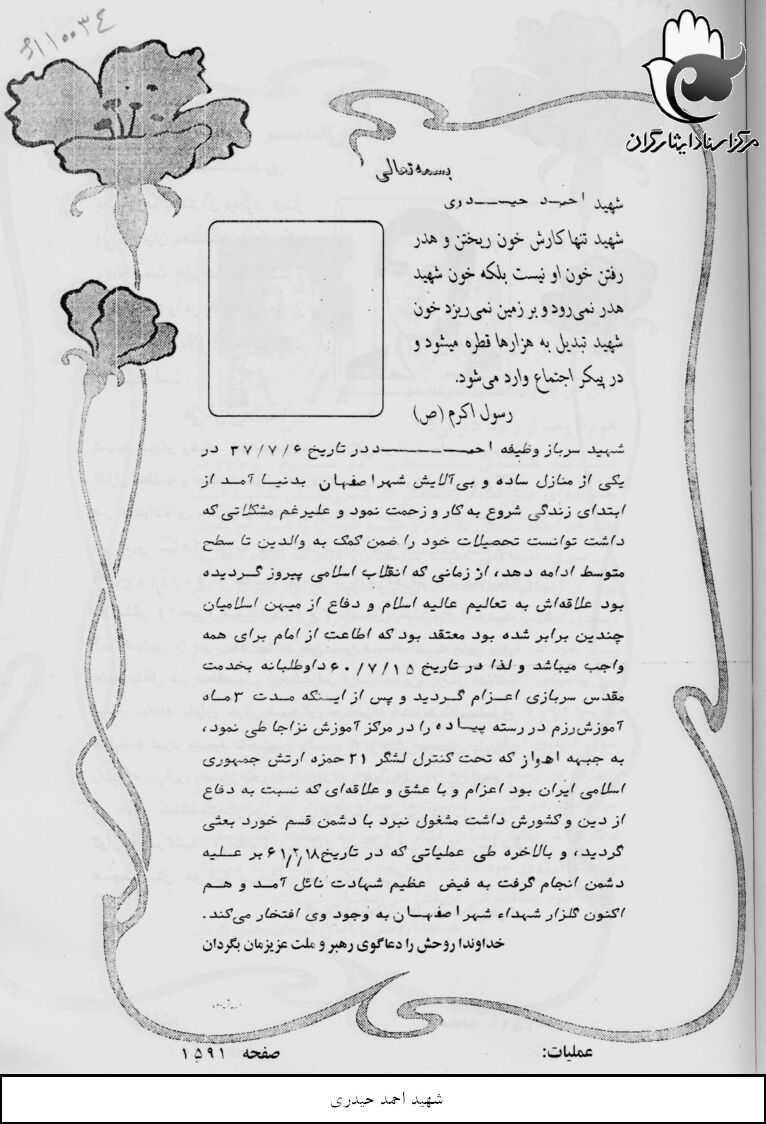 ۶۱۱۰۰۳۴
مرکز اسناد ایثارگران
بسمه تعالی
شهید احمد حیدری
شهید تنها کارش خون ریختن و هدر
رفتن خون او نیست بلکه خون شهید
هدر نمی‌رود و بر زمین نمی‌ریزد خون
شهید تبدیل به هزارها قطره میشود و
در پیکر اجتماع وارد می‌شود.
رسول اکرم (ص)
شهید سرباز وظیفه احمد در تاریخ ۳۷/۷/۶ در
یکی از منازل ساده و بی‌آلایش شهر اصفهان بدنیا آمد از
ابتدای زندگی شروع به کار و زحمت نمود و علیرغم مشکلاتی که
داشت توانست تحصیلات خود را ضمن کمک به والدین تا سطح
متوسط ادامه دهد، از زمانی که انقلاب اسلامی پیروز گردیده
بود علاقه‌اش به تعالیم عالیه اسلام و دفاع از میهن اسلامیان
چندین برابر شده بود معتقد بود که اطاعت از امام برای همه
واجب میباشد و لذا در تاریخ ۶۰/۷/۱۵ داوطلبانه بخدمت
مقدس سربازی اعزام گردید و پس از اینکه مدت ۳ ماه
آموزش رزم در رسته پیاده را در مرکز آموزش نزاجا طی نمود،
به جبهه اهواز که تحت کنترل لشگر ۲۱ حمزه ارتش جمهوری
اسلامی ایران بود اعزام و با عشق و علاقه‌ای که نسبت به دفاع
از دین و کشورش داشت مشغول نبرد با دشمن قسم خورد بعثی
گردید، و بالاخره طی عملیاتی که در تاریخ ۶۱/۲/۱۸ بر علیه
دشمن انجام گرفت به فیض عظیم شهادت نائل آمد و هم
اکنون گلزار شهداء شهر اصفهان به وجود وی افتخار می‌کند.
خداوندا روحش را دعاگوی رهبر و ملت عزیزمان بگردان
عملیات:
صفحه ۱۵۹۱
شهید احمد حیدری